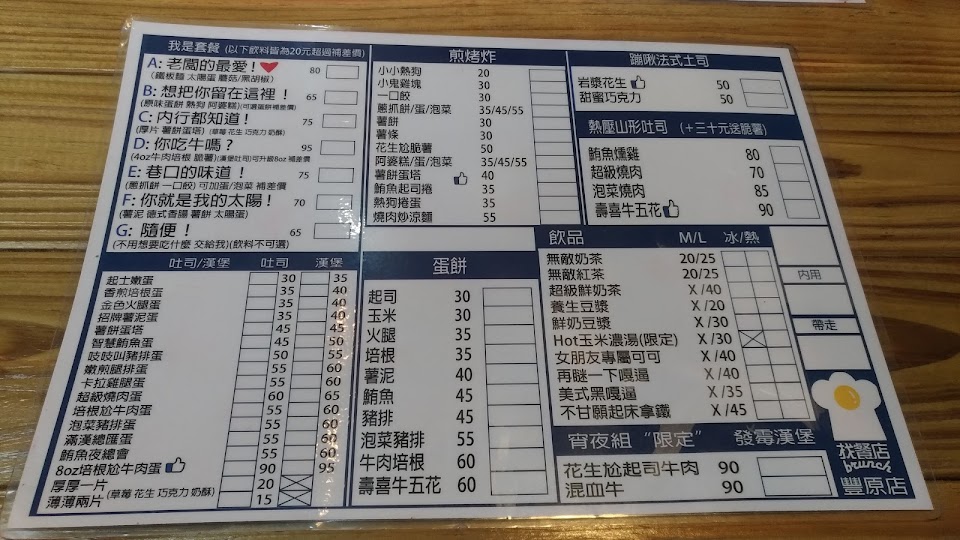 我是套餐 (以下飲料皆為20元超過補差價)
A: 老闆的最愛！ 80
(鐵板麵 太陽蛋 蘑菇/黑胡椒)
B: 想把你留在這裡！ 65
(原味蛋餅 熱狗 阿婆糕)(可選蛋餅補差價)
C: 内行都知道！ 75
(厚片 薯餅蛋塔) (草莓 花生 巧克力 奶酥)
D: 你吃牛嗎？ 95
(4oz牛肉培根 脆薯)(漢堡吐司)可升級8oz 補差價)
E: 巷口的味道！ 75
(蔥抓餅 一口餃) 可加蛋/泡菜 補差價)
F: 你就是我的太陽！ 70
(薯泥 德式香腸 薯餅 太陽蛋)
G: 隨便！ 65
(不用想要吃什麼 交給我)(飲料不可選)
吐司/漢堡 吐司 漢堡
起士嫩蛋 30 35
香煎培根蛋 35 40
金色火腿蛋 35 40
招牌薯泥蛋 35 40
薯餅蛋塔 45 45
智慧鮪魚蛋 45 50
吱吱叫豬排蛋 50 55
嫩煎腿排蛋 55 60
卡拉雞腿蛋 55 60
超級燒肉蛋 60 65
培根尬牛肉蛋 55 60
泡菜豬排蛋 55 60
滿漢總匯蛋 55 60
鮪魚夜總會 55 60
8oz培根尬牛肉蛋 90 95
厚厚一片 20
(草莓 花生 巧克力 奶酥)
薄薄兩片 15
煎烤炸
小小熱狗 20
小鬼雞塊 30
一口餃 30
蔥抓餅/蛋/泡菜 35/45/55
薯餅 30
薯條 30
花生尬脆薯 50
阿婆糕/蛋/泡菜 35/45/55
薯餅蛋塔 40
鮪魚起司捲 35
熱狗捲蛋 35
燒肉炒涼麵 55
蛋餅
起司 30
玉米 30
火腿 35
培根 35
薯泥 40
鮪魚 45
豬排 45
泡菜豬排 55
牛肉培根 60
壽喜牛五花 60
蹦啾法式土司
岩漿花生 50
甜蜜巧克力 50
熱壓山形吐司 (+三十元送脆薯)
鮪魚燻雞 80
超級燒肉 70
泡菜燒肉 85
壽喜牛五花 90
飲品 M/L 冰/熱
無敵奶茶 20/25
無敵紅茶 20/25
超級鮮奶茶 X/40
養生豆漿 X/20
鮮奶豆漿 X/30
Hot玉米濃湯(限定) X/30
女朋友專屬可可 X/40
再瞇一下嘎逼 X/40
美式黑嘎逼 X/35
不甘願起床拿鐵 X/45
宵夜組“限定” 發霉漢堡
花生尬起司牛肉 90
混血牛 90
内用
帶走
找餐店
brunch
豐原店